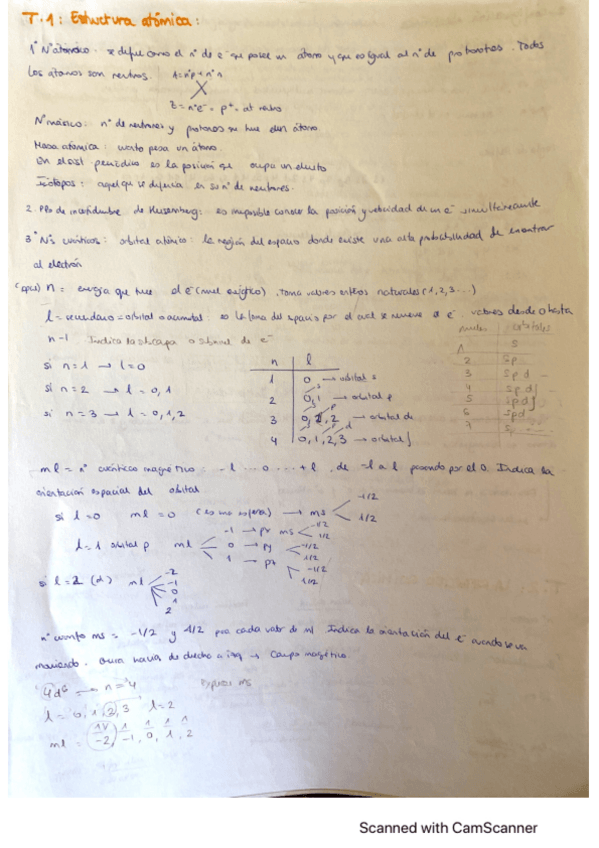 T.1: Estructura atómica:
1º Nº atómico: se define como el nº de e⁻ que posee un átomo y que es igual al nº de protones. Todos
los átomos son neutros. A = nºp + nºn
Z = nºe⁻ = p⁺ at neutro
Nº másico: nº de neutrones y protones que tiene el átomo.
Masa atómica: cuanto pesa un átomo.
En el sist periódico es la posición que ocupa un elmto
Isótopos: aquel que se diferencia en su nº de neutrones.
2. PPo de incertidumbre de Heisemberg: es imposible conocer la posición y velocidad de un e⁻ simultáneamente
3º Nºs cuánticos: orbital atómico: la región del espacio donde existe una alta probabilidad de encontrar
al electrón
(capas) n = energía que tiene el e⁻ (nivel energético). Toma valores enteros naturales (1,2,3...)
l = secundario = orbital o azimutal: es la forma del espacio por el cual se mueve el e⁻. valores desde 0 hasta
n-1 Indica la subcapa o subnivel de e⁻
si n=1 → l=0
si n=2 → l=0,1
si n=3 → l=0,1,2
n l
1 0 → orbital s
2 0,1 → orbital p
3 0,1,2 → orbital d
4 0,1,2,3 → orbital f
niveles orbitales
1 s
2 sp
3 spd
4 spdf
5 spdf
6 spd
7 sp
ml = nº cuántico magnético: -l ... 0 ... +l, de -l a l pasando por el 0. Indica la
orientación espacial del orbital
si l=0 ml=0 (es una esfera) → ms -1/2 1/2
l=1 orbital p ml -1 → px ms -1/2 1/2
0 → py -1/2 1/2
1 → pz -1/2 1/2
si l=2 (d) ml -2 -1 0 1 2
nº cuanto ms = -1/2 y 1/2 para cada valor de ml Indica la orientación del e⁻ cuando se va
moviendo. Gira hacia de derecha a izq → Campo magnético
4d⁶ → n=4
l = 0,1,2,3 l=2
ml = -2, -1, 0, 1, 2
Scanned with CamScanner